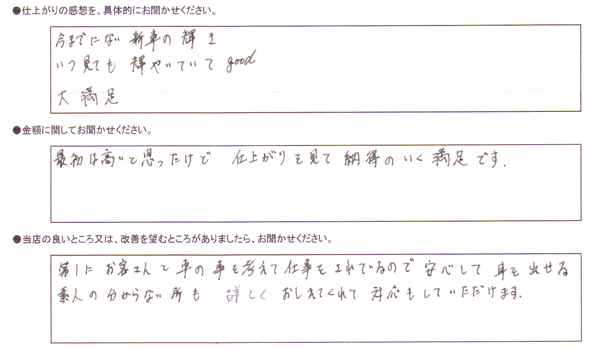 ●仕上がりの感想を、具体的にお聞かせください。
今までにない 新車の 輝き
いつ見ても 輝やいていて good
大満足
●金額に関してお聞かせください。
最初は高いと思ったけど 仕上がりを見て 納得のいく 満足です.
●当店の良いところ又は、改善を望むところがありましたら、お聞かせください。
第1に お客さんと車の事を考えて仕事をされているので 安心して 車を出せる
素人の分からない所も 詳しく おしえてくれて 対応もしていただけます.